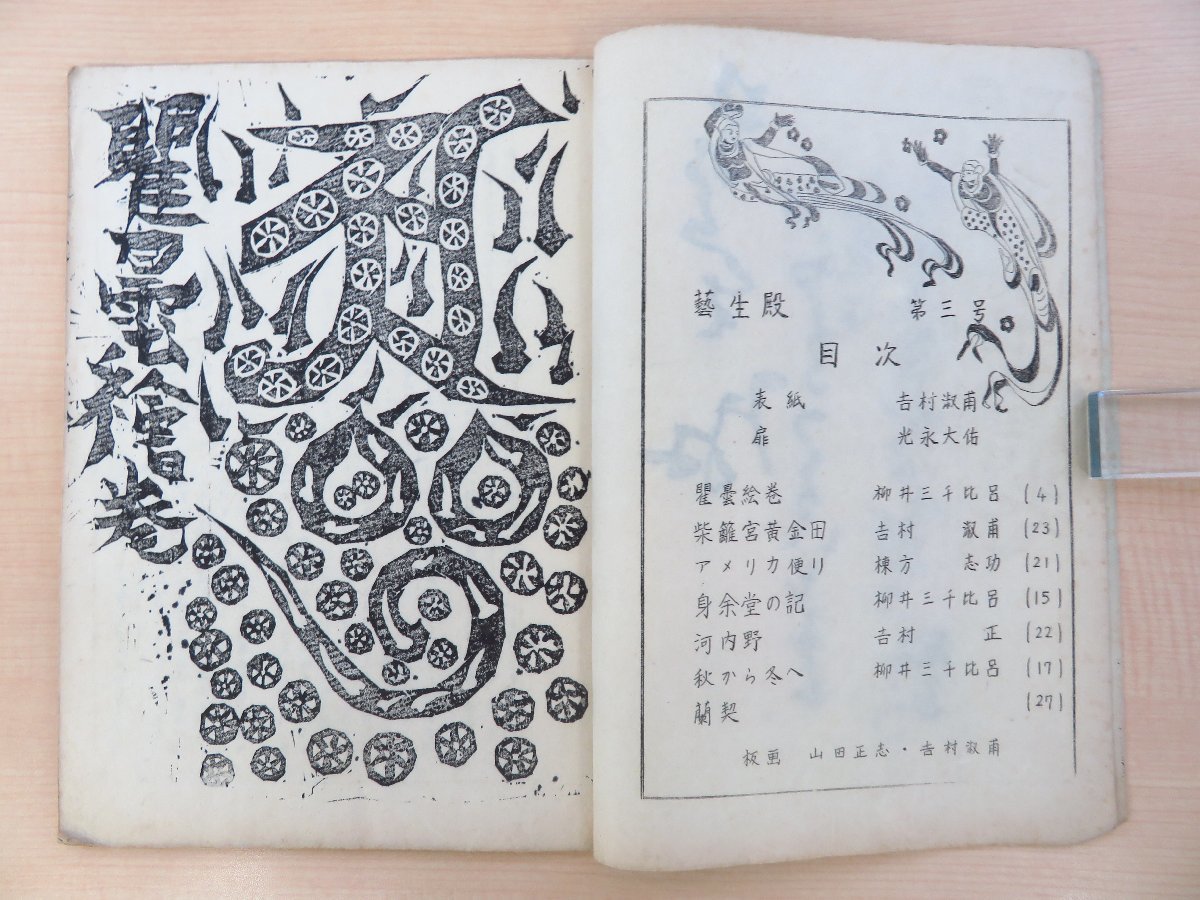 瞿曇繪卷
藝生殿 第三号
目次
表紙 吉村淑甫
扉 光永大佑
瞿曇絵巻 柳井三千比呂 (4)
柴籬宮黃金田 吉村淑甫 (23)
アメリカ便り 棟方志功 (21)
身余堂の記 柳井三千比呂 (15)
河内野 吉村正 (22)
秋から冬へ 柳井三千比呂 (17)
蘭契 (27)
板画 山田正志・吉村淑甫